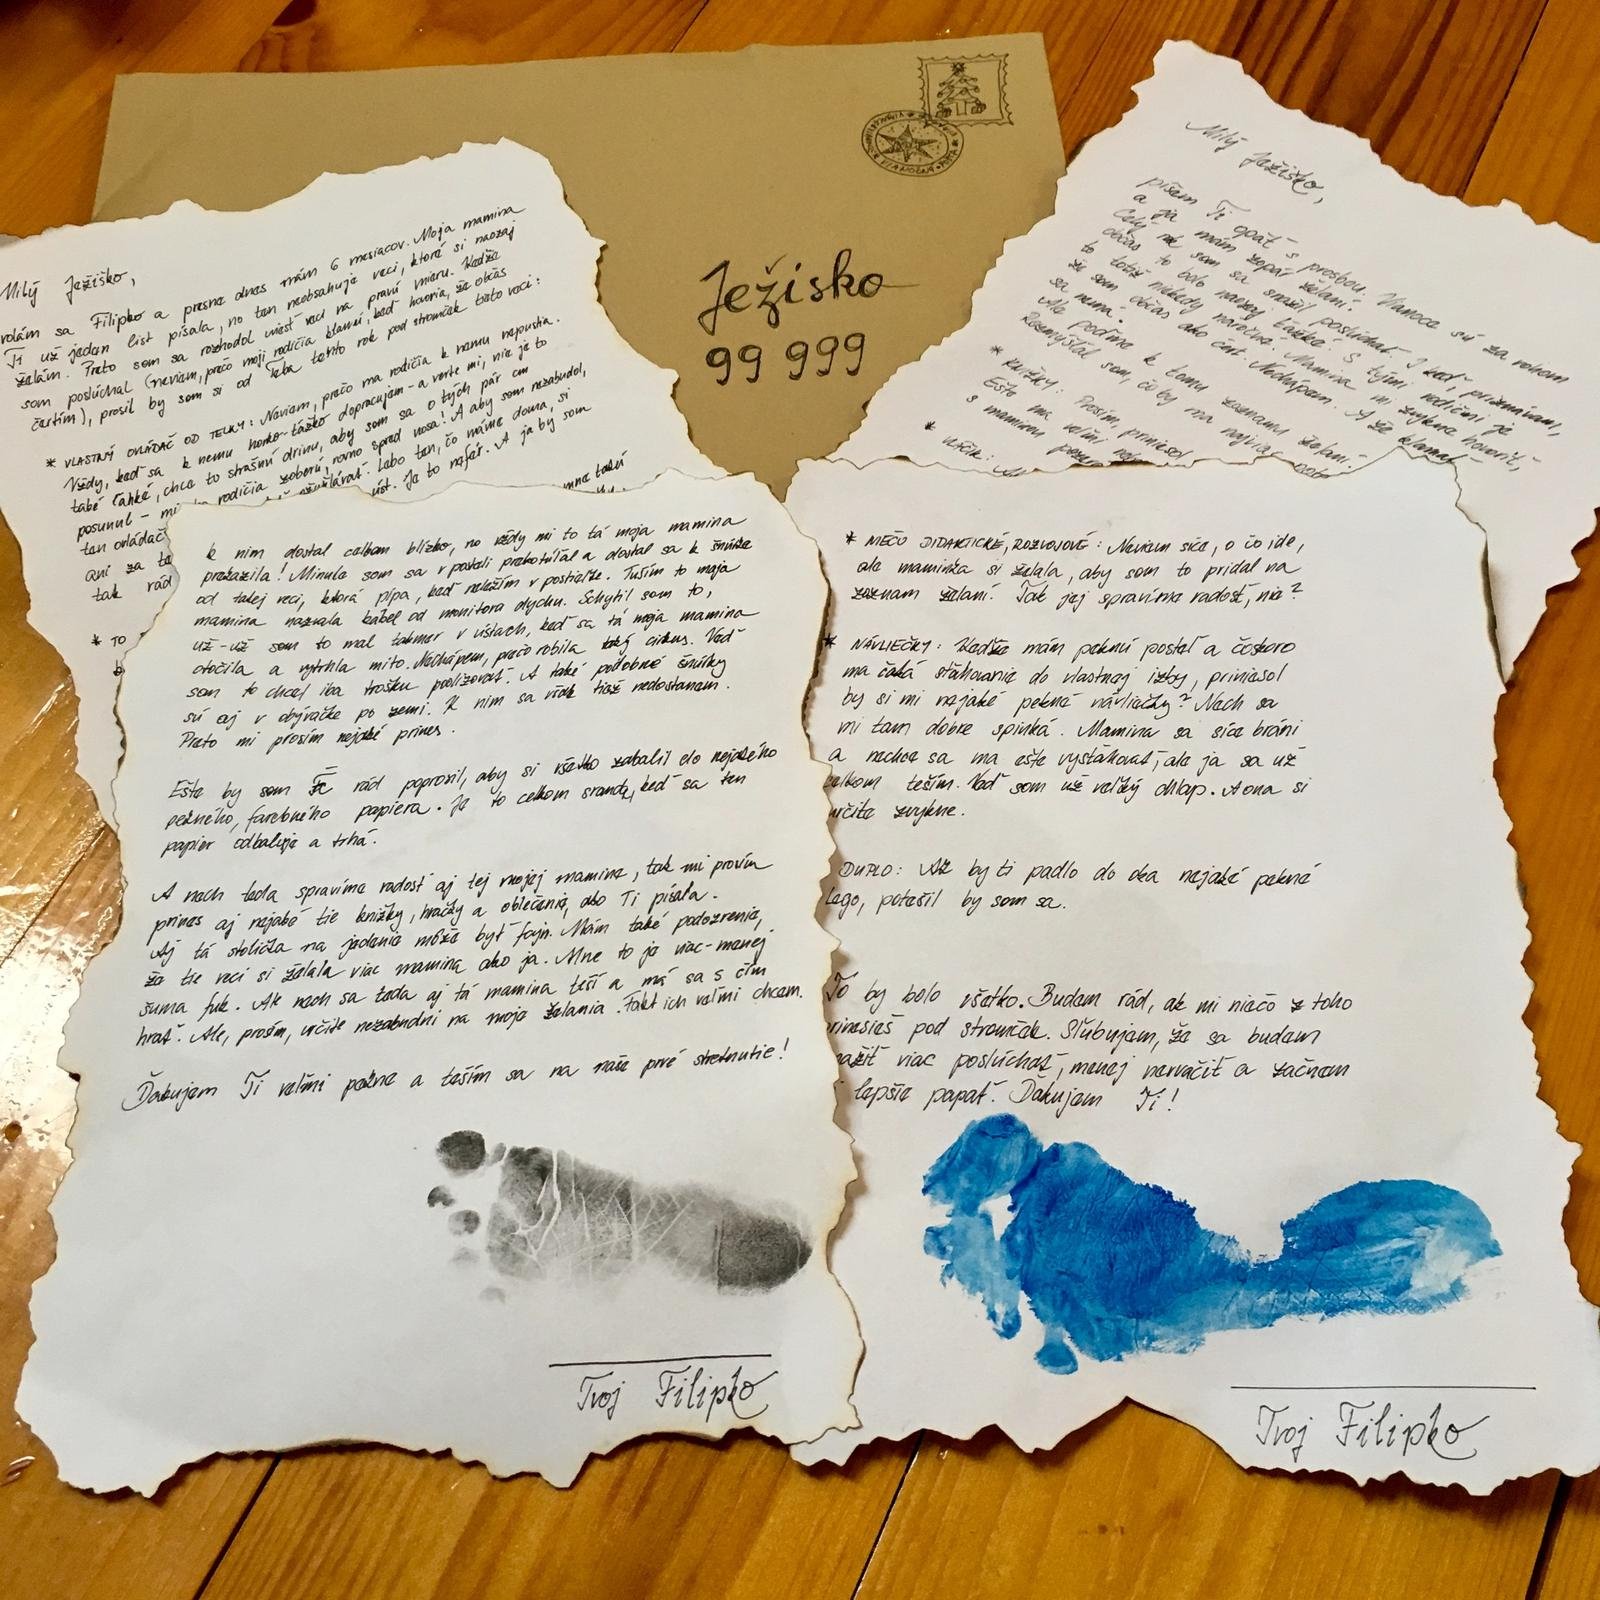 Ježiško
99 999
Milý Ježiško,
volám sa Filipko a presne dnes mám 6 mesiacov. Moja mamina
Ti už jeden list písala, no ten neobsahuje veci, ktoré si naozaj
želám. Preto som sa rozhodol uviesť veci na pravú mieru. Keďže
som poslúchal (neviem, prečo moji rodičia klamú, keď hovoria, že občas
čertím), prosil by som si od Teba tento rok pod stromček tieto veci:
* VLASTNÝ OVLÁDAČ OD TELKY: Neviem, prečo ma rodičia k nemu nepustia.
Vždy, keď sa k nemu horko-ťažko dopracujem - a verte mi, nie je to
také ľahké, chce to strašnú drinu, aby som sa o tých pár cm
posunul - mi ho rodičia zoberú rovno spred nosa! A aby som nezabudol,
ten ovládač
úst. Je to nefér. A ja by som
ani za te
tak rád
* TO
k nim dostal celkom blízko, no vždy mi to tá moja mamina
prekazila! Minule som sa v posteli prekotúľal a dostal sa k šnúrke
od takej veci, ktorá pípa, keď neležím v postieľke. Tuším to moja
mamina nazvala kábel od monitora dychu. Schytil som to,
už-už som to mal takmer v ústach, keď sa tá moja mamina
otočila a vytrhla mi to. Nechápem, prečo robila taký cirkus. Veď
som to chcel iba trošku poolizovať. A také podobné šnúrky
sú aj v obývačke po zemi. K nim sa však tiež nedostanem.
Preto mi prosím nejaké prines.
Ešte by som Ťa rád poprosil, aby si všetko zabalil do nejakého
pekného, farebného papiera. Je to celkom sranda, keď sa ten
papier odbaľuje a trhá.
A nech teda spravíme radosť aj tej mojej mamine, tak mi prosím
prines aj nejaké tie knižky, hračky a oblečenie, ako Ti písala.
Aj tá stolička na jedenie môže byť fajn. Mám také podozrenie,
že tie veci si želala viac mamina ako ja. Mne to je viac-menej
šuma fuk. Ale nech sa teda aj tá mamina teší a má sa s čím
hrať. Ale, prosím, určite nezabudni na moje želania. Fakt ich veľmi chcem.
Ďakujem Ti veľmi pekne a teším sa na naše prvé stretnutie!
Tvoj Filipko
Milý Ježiško,
píšem Ti opäť s prosbou. Vianoce sú za rohom
a ja mám zopár želaní.
Celý rok som sa snažil poslúchať. I keď priznávam,
občas to bolo naozaj ťažké. S tými rodičmi je
to totiž niekedy náročné. Mamina mi zvykne hovoriť,
že som občas ako čert. Nechápem. A že klamať
sa nemá!
Ale poďme k tomu zoznamu želaní.
Rozmýšľal som, čo by ma najviac
* KNIŽKY: Prosím, prinies
Ešte ma veľmi
s maminou
* VLÁČIK:
* NIEČO DIDAKTICKÉ, ROZVOJOVÉ: Neviem síce, o čo ide,
ale maminka si želala, aby som to pridal na
zoznam želaní. Tak jej spravíme radosť, nie?
* NÁVLIEČKY: Keďže mám peknú posteľ a čoskoro
ma čaká sťahovanie do vlastnej izby, priniesol
by si mi nejaké pekné návliečky? Nech sa
mi tam dobre spinká. Mamina sa síce bráni
a nechce sa ma ešte vysťahovať, ale ja sa už
celkom teším. Veď som už veľký chlap. A ona si
určite zvykne.
DUPLO: Ak by ti padlo do oka nejaké pekné
lego, potešil by som sa.
To by bolo všetko. Budem rád, ak mi niečo z toho
prinesieš pod stromček. Sľubujem, že sa budem
snažiť viac poslúchať, menej nervačiť a začnem
lepšie papať. Ďakujem Ti!
Tvoj Filipko